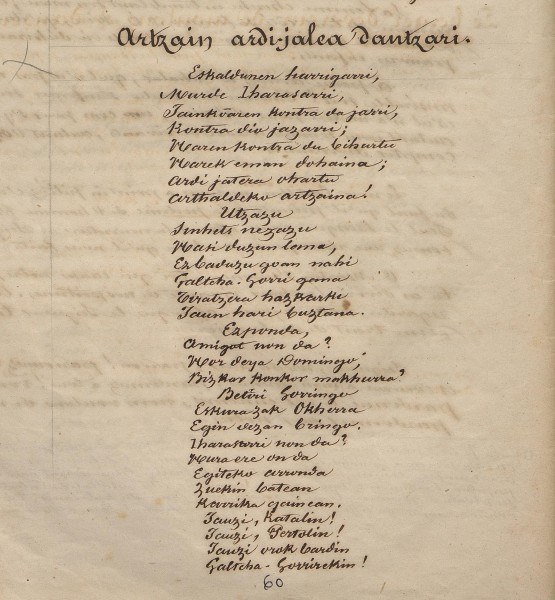 Artzain ardi-jalea dantzari.
Eskaldunen harrigarri,
Murde Iharasarri,
Jainkoaren kontra da jarri,
Kontra dio jazarri;
Haren kontra du bihurtu
Harek eman dohaina;
Ardi jatera ohartu
Arthaldeko artzaina!
Utzazu
Sinhets nezazu
Hasi duzun lana,
Ez baduzu goan nahi
Galtcha-Gorri gana
Tiratzera hazkarki
Jaun hari buztana.
Ezponda,
Amigot non da?
Hor deya Domingo,
Bizkar konkor makhurra?
Betiri Gorringo
Eskura zak Okherra
Egin dezan bringo.
Iharasarri non da?
Hura ere on da
Egiteko arronda
Zuekin batean
Karrika gainean.
Jauzi, Katalin!
Jauzi, Pertolin!
Jauzi orok bardin
Galtcha-Gorrirekin!
60